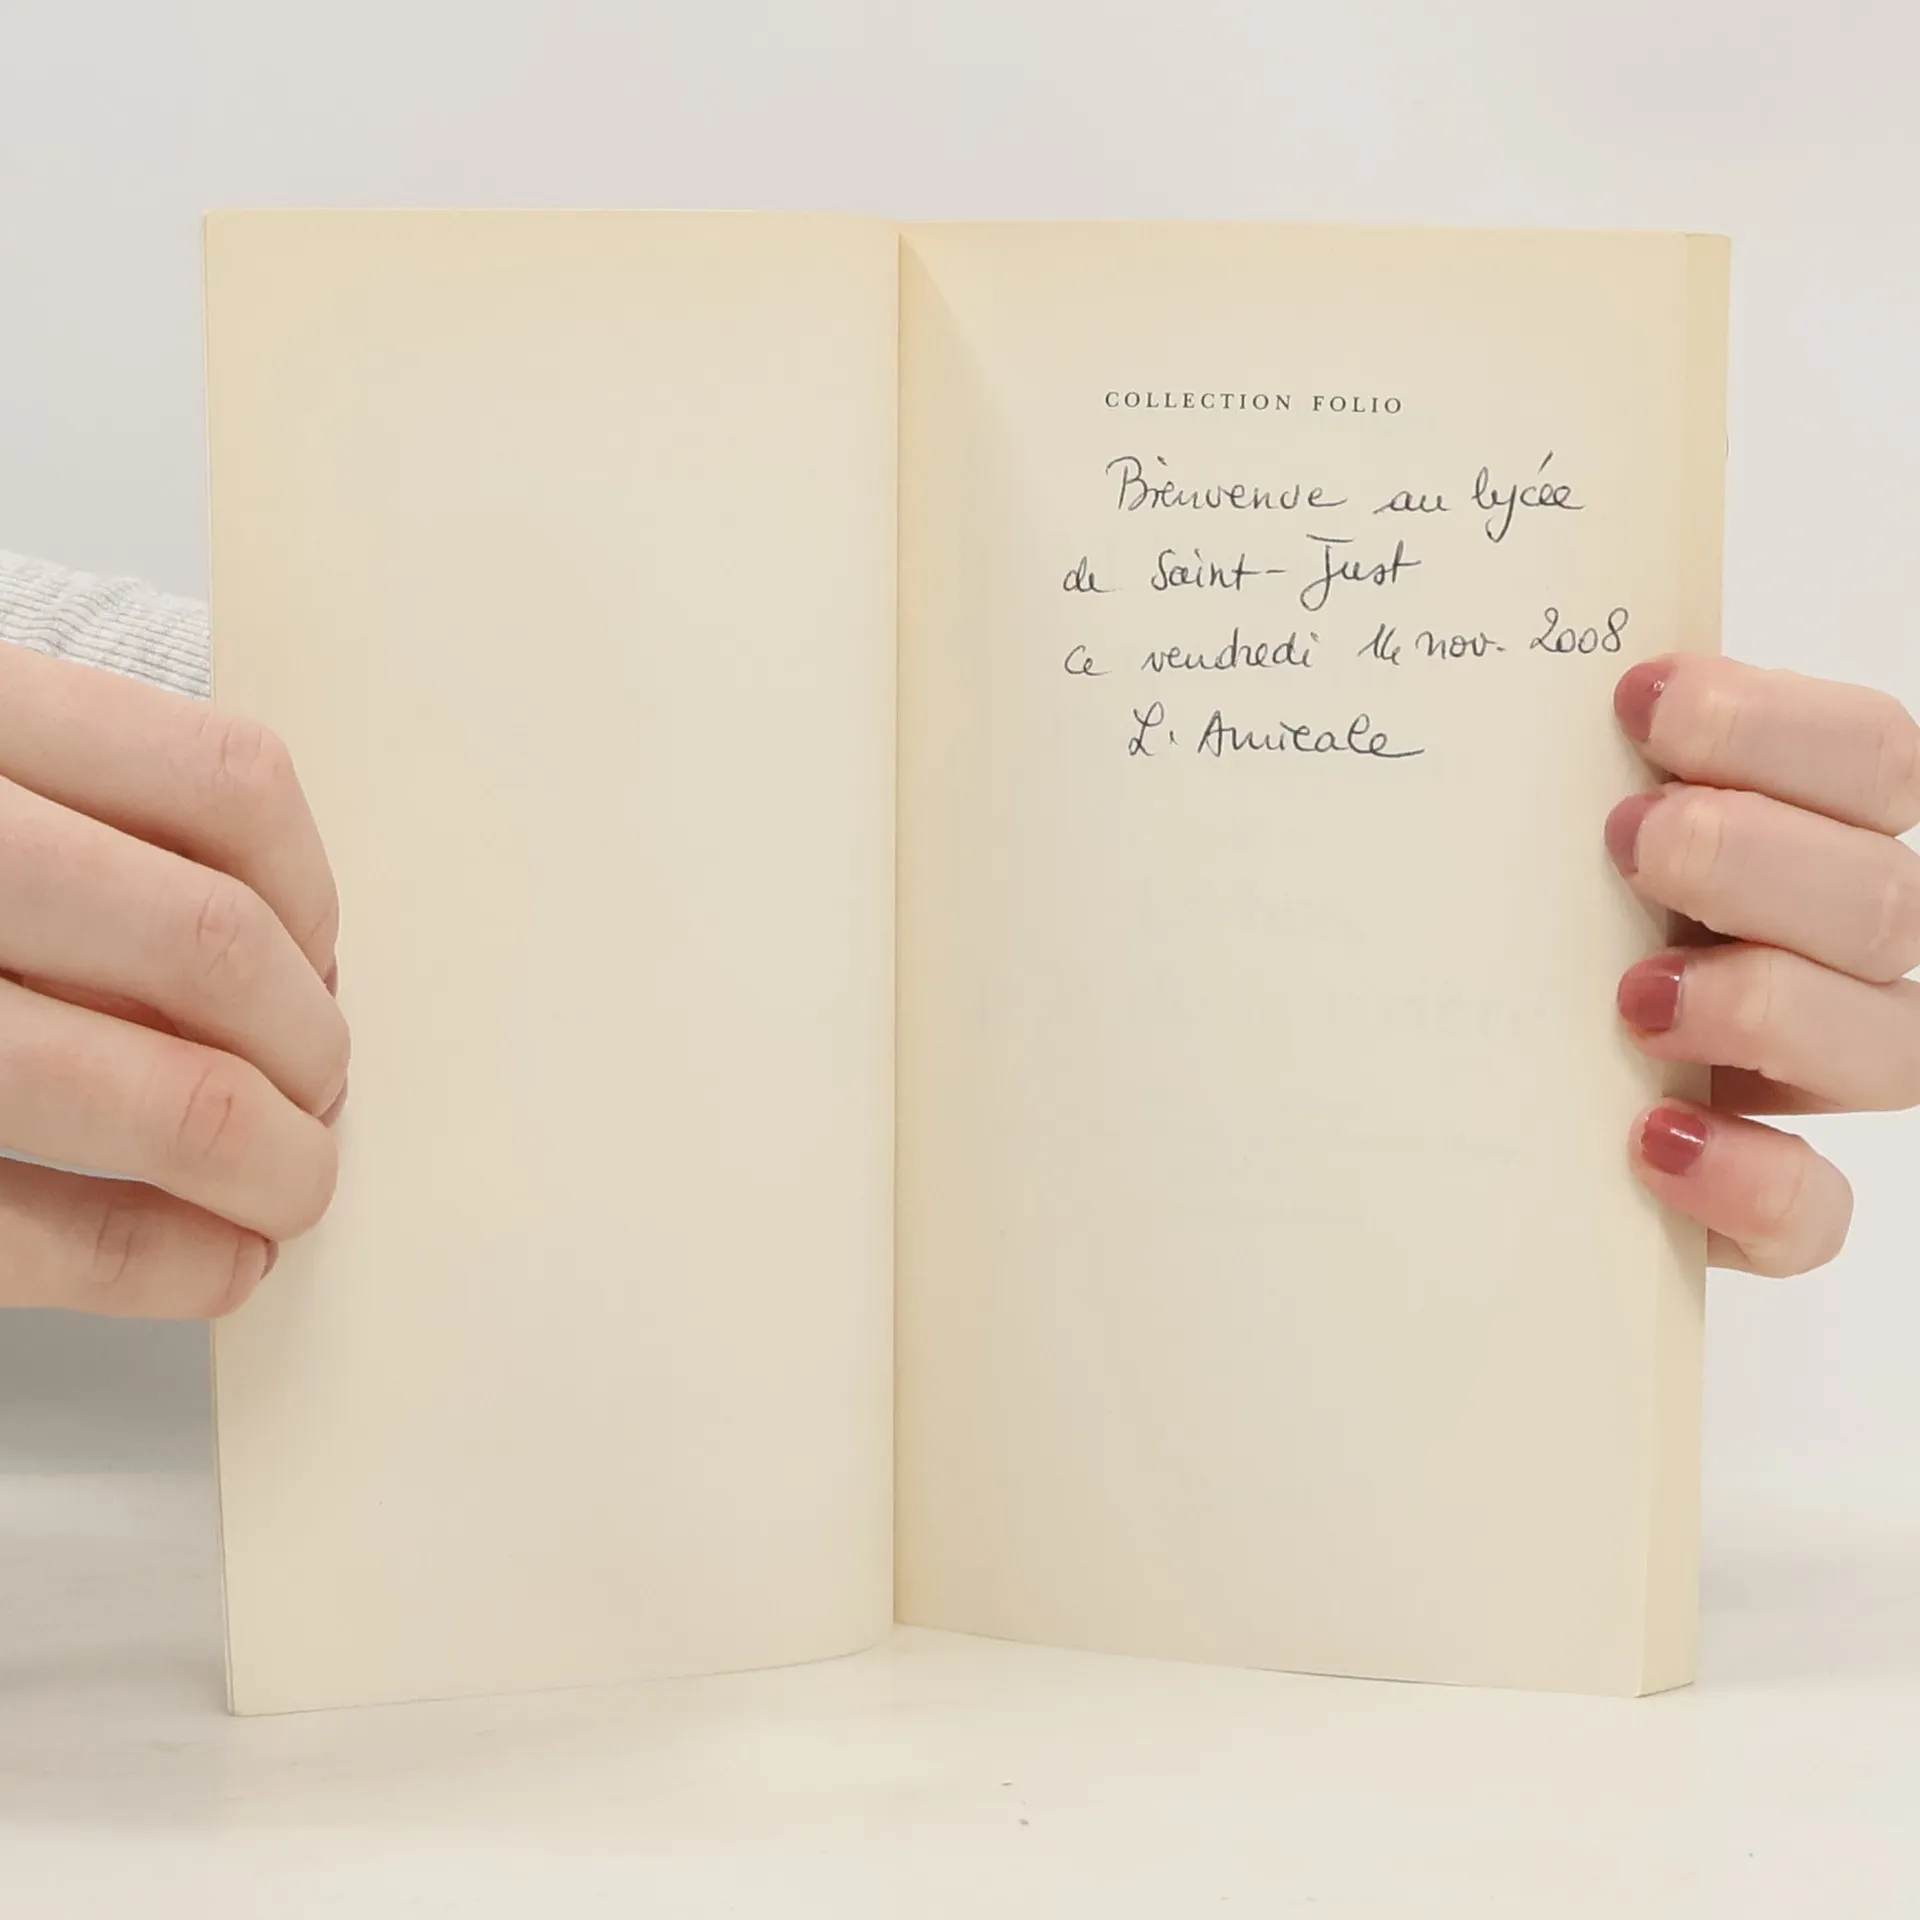 COLLECTION FOLIO
Bienvenue au lycée
de Saint-Just
ce vendredi 14 nov. 2008
L'Amicale